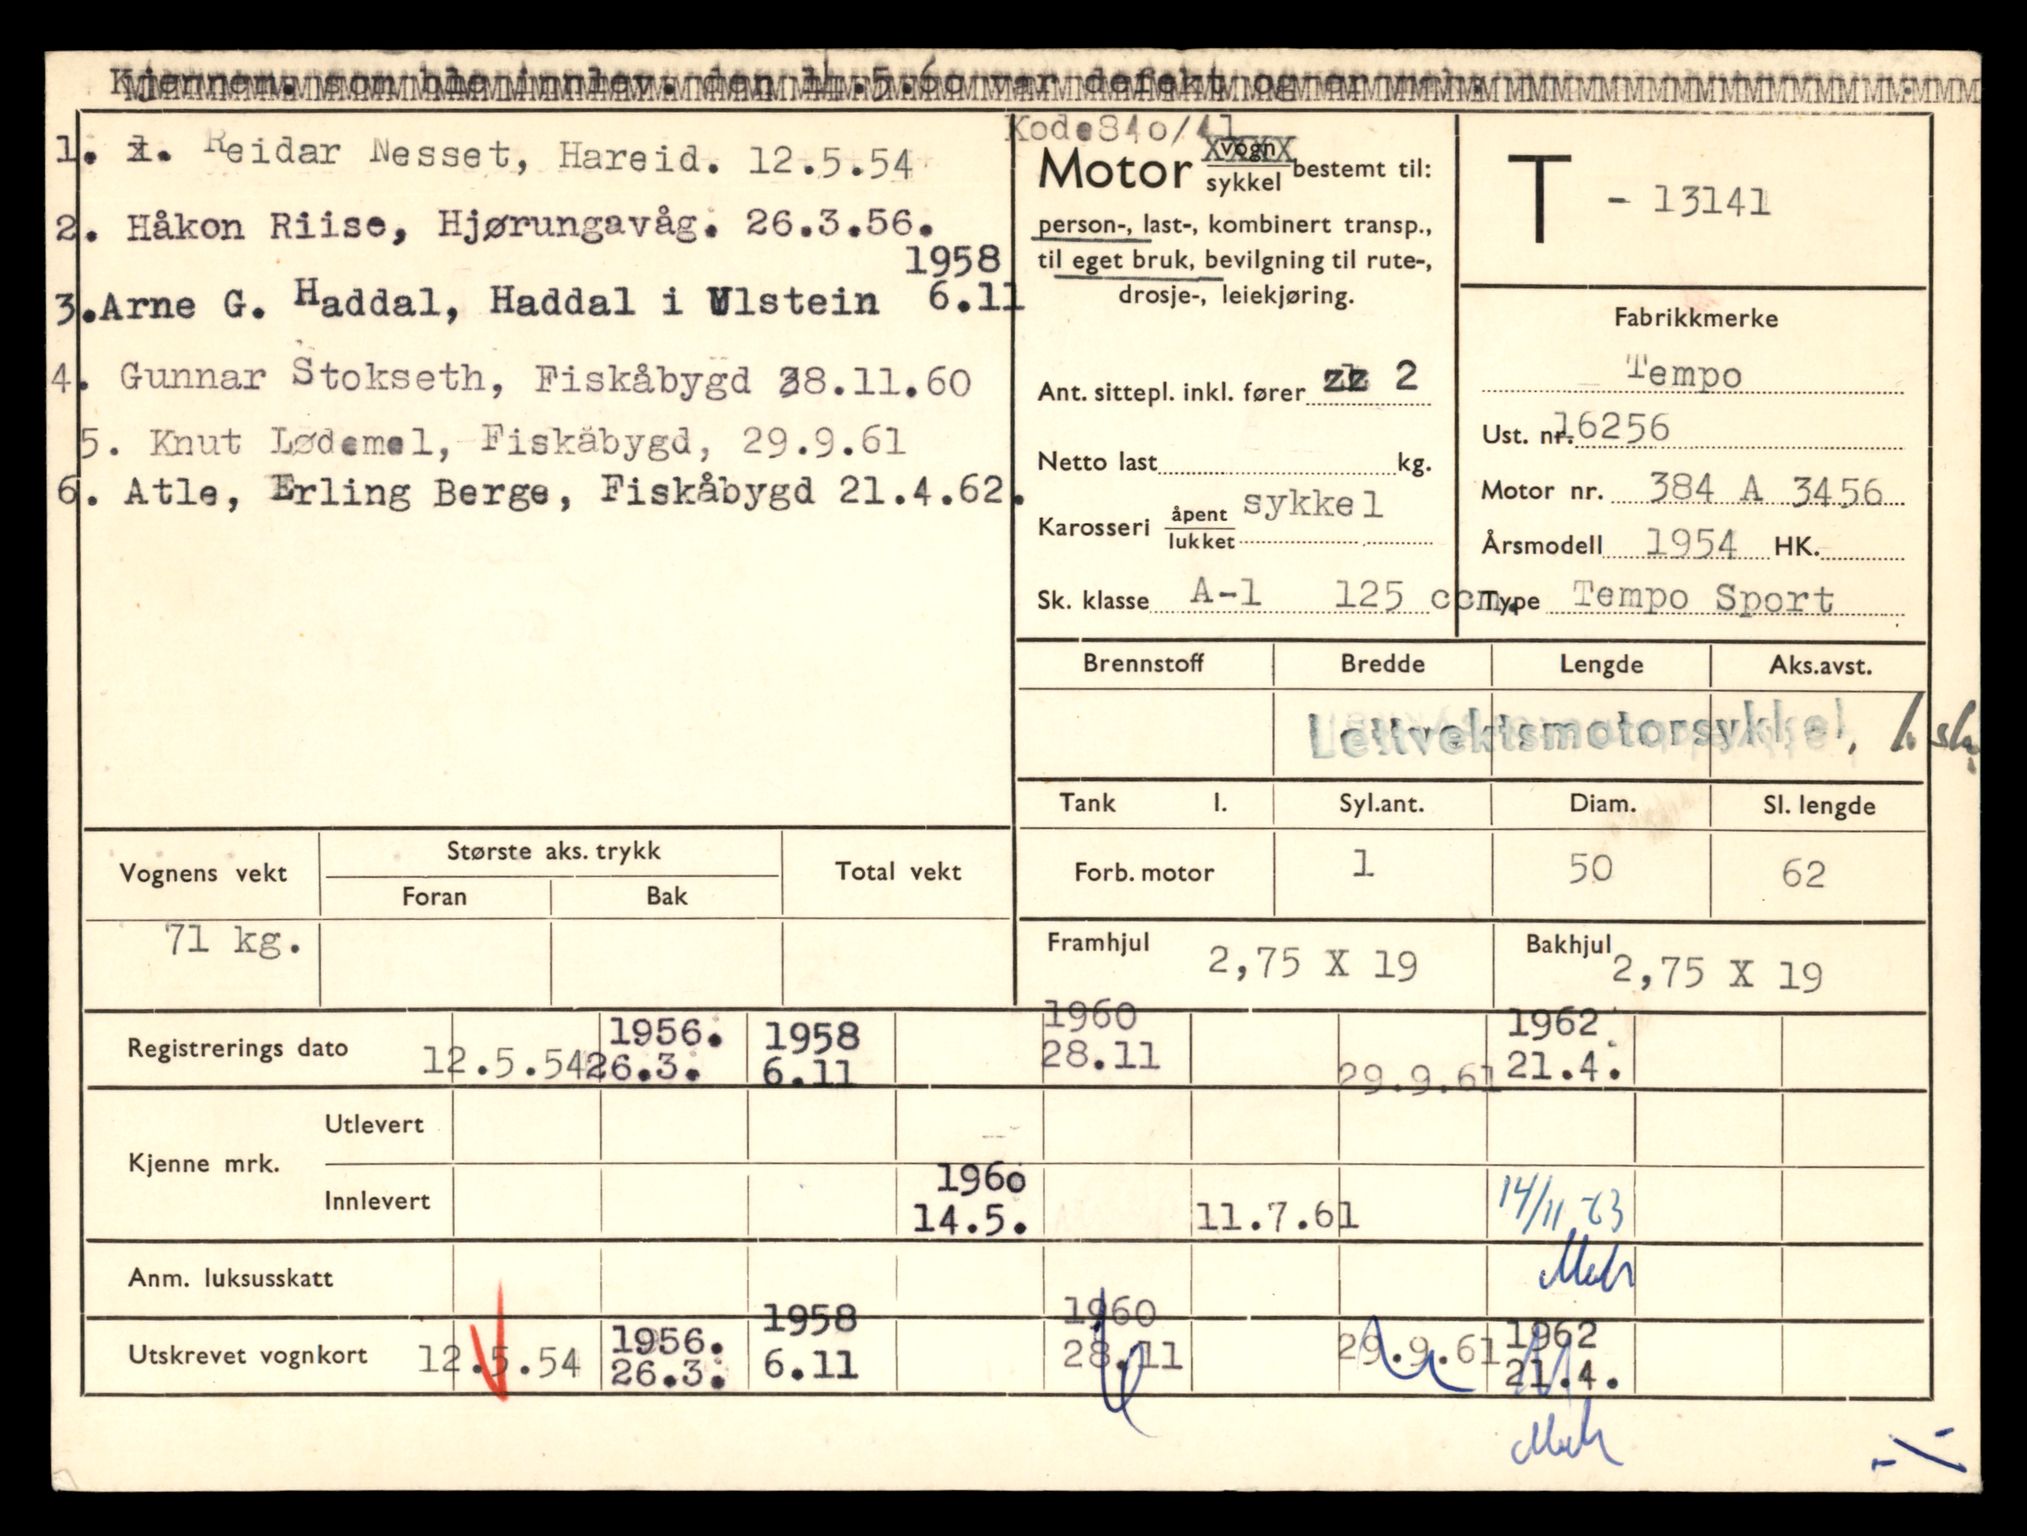 Kjennem. som ble innlev. den 14.5.60 var defekt og er
1. Reidar Nesset, Hareid. 12.5.54
2. Håkon Riise, Hjørungavåg. 26.3.56.
1958
3. Arne G. Haddal, Haddal i Ulstein 6.11
4. Gunnar Stokseth, Fiskåbygd 28.11.60
5. Knut Lødemel, Fiskåbygd, 29.9.61
6. Atle, Erling Berge, Fiskåbygd 21.4.62.
Kode 840/41
Motor vogn sykkel bestemt til:
person-, last-, kombinert transp.,
til eget bruk, bevilgning til rute-,
drosje-, leiekjøring.
Ant. sittepl. inkl. fører 2
Netto last kg.
Karosseri åpent lukket sykkel
Sk. klasse A-1 125 ccm.
T - 13141
Fabrikkmerke
Tempo
Ust. nr. 16256
Motor nr. 384 A 3456
Årsmodell 1954 HK.
Type Tempo Sport
Brennstoff Bredde Lengde Aks.avst.
Lettvektsmotorsykkel.
Tank l. Syl.ant. Diam. Sl. lengde
Forb. motor 1 50 62
Framhjul 2,75 X 19 Bakhjul 2,75 X 19
Vognens vekt Største aks. trykk Total vekt
Foran Bak
71 kg.
1956. 1958 1960 1962
Registrerings dato 12.5.54 26.3. 6.11 28.11 29.9.61 21.4.
Kjenne mrk.
Utlevert
1960
Innlevert 14.5. 11.7.61 14/11 63
Anm. luksusskatt
1956. 1958 1960 1962
Utskrevet vognkort 12.5.54 26.3. 6.11 28.11 29.9.61 21.4.